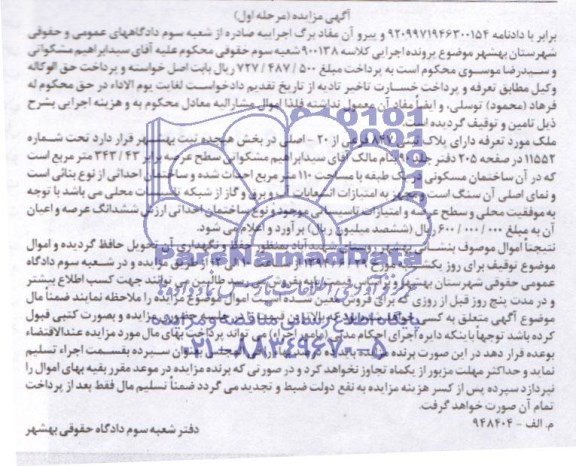 آگهی مزایده (مرحله اول)
برابر با دادنامه ۹۲۰۹۹۷۱۹۴۶۳۰۰۱۵۴ و پیرو آن مفاد برگ اجراییه صادره از شعبه سوم دادگاههای عمومی و حقوقی
شهرستان بهشهر موضوع پرونده اجرایی کلاسه ۹۰۰۱۳۸ شعبه سوم حقوقی محکوم علیه آقای سیدابراهیم مشکواتی
و سیدرضا موسوی محکوم است به پرداخت مبلغ ۵۰۰ / ۴۸۷ / ۷۲۷ ریال بابت اصل خواسته و پرداخت حق الوکاله
وکیل مطابق تعرفه و پرداخت خسارت تاخیر تادیه از تاریخ تقدیم دادخواست لغایت یوم الاداء در حق محکوم له
فرهاد (محمود) توسلی، و ایفاً مفاد آن معمول نداشته فلذا اموال مشارالیه معادل محکوم به و هزینه اجرایی بشرح
ذیل تامین و توقیف گردیده است
ملک مورد تعرفه دارای پلاک ثبتی ۸۴۷ فرعی از ۲۰ - اصلی در بخش هیجده ثبت بهشهر قرار دارد تحت شماره
۱۱۵۵۲ در صفحه ۲۰۵ دفتر جلد بنام مالک آقای سیدابراهیم مشکواتی سطح عرصه برابر ۴۳ / ۳۴۳ متر مربع است
که در آن ساختمان مسکونی یک طبقه با مساحت ۱۱۰ متر مربع احداث شده و ساختمان احداثی از نوع بنائی است
و نمای اصلی آن سنگ است و مجهز به امتیازات انشعابات آب و برق و گاز از شبکه تاسیسات محلی می باشد با توجه
به موقعیت محلی و سطح عرصه و امتیازات تاسیساتی موجود و نوع ساختمان احداثی ارزش ششدانگ عرصه و اعیان
آن به مبلغ ۰۰۰ / ۰۰۰ / ۶۰۰ ریال (ششصد میلیون ریال) برآورد و اعلام می شود.
نتیجتاً اموال موصوف بهشهر روستای شهیدآباد بمنظور حفظ و نگهداری آن تحویل حافظ گردیده و اموال
موضوع توقیف برای روز یکشنبه مورخ از طریق مزایده و در شعبه سوم دادگاه
عمومی حقوقی شهرستان بهشهر جهت کسب اطلاع بیشتر
و در مدت پنج روز قبل از روزی که برای فروش معین شده است اموال موضوع مزایده را ملاحظه نمایند ضمناً مال
موضوع آگهی متعلق به کسی مزایده و بصورت کتبی قبول
کرده باشد توجهاً باینکه دایره اجرای احکام مدنی (مامور اجرا) می تواند پرداخت بهای مال مورد مزایده عندالاقتضاء
بوعده قرار دهد در این صورت برنده مزایده سپرده بقسمت اجراء تسلیم
نماید و حداکثر مهلت مزبور از یکماه تجاوز نخواهد کرد و در صورتی که برنده مزایده در موعد مقرر بقیه بهای اموال را
نپردازد سپرده پس از کسر هزینه مزایده به نفع دولت ضبط و تجدید می گردد ضمناً تسلیم مال فقط بعد از پرداخت
تمام آن صورت خواهد گرفت.
م. الف - ۹۴۸۴۰۴
دفتر شعبه سوم دادگاه حقوقی بهشهر
ParsNamadData
پایگاه اطلاع رسانی مناقصه و مزایده
۰۲۱-۸۸۳۴۹۶۷۰-۵